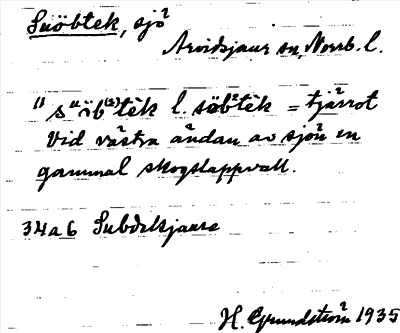 Suöbtek, sjö
Arvidsjaur sn, Norrb. l.
"suöb(2)tèk l. söb²tèk = tjärrot
Vid västra ändan av sjön en
gammal skogslappvall.
34a6 Subdekjaure
H. Grundström 1935